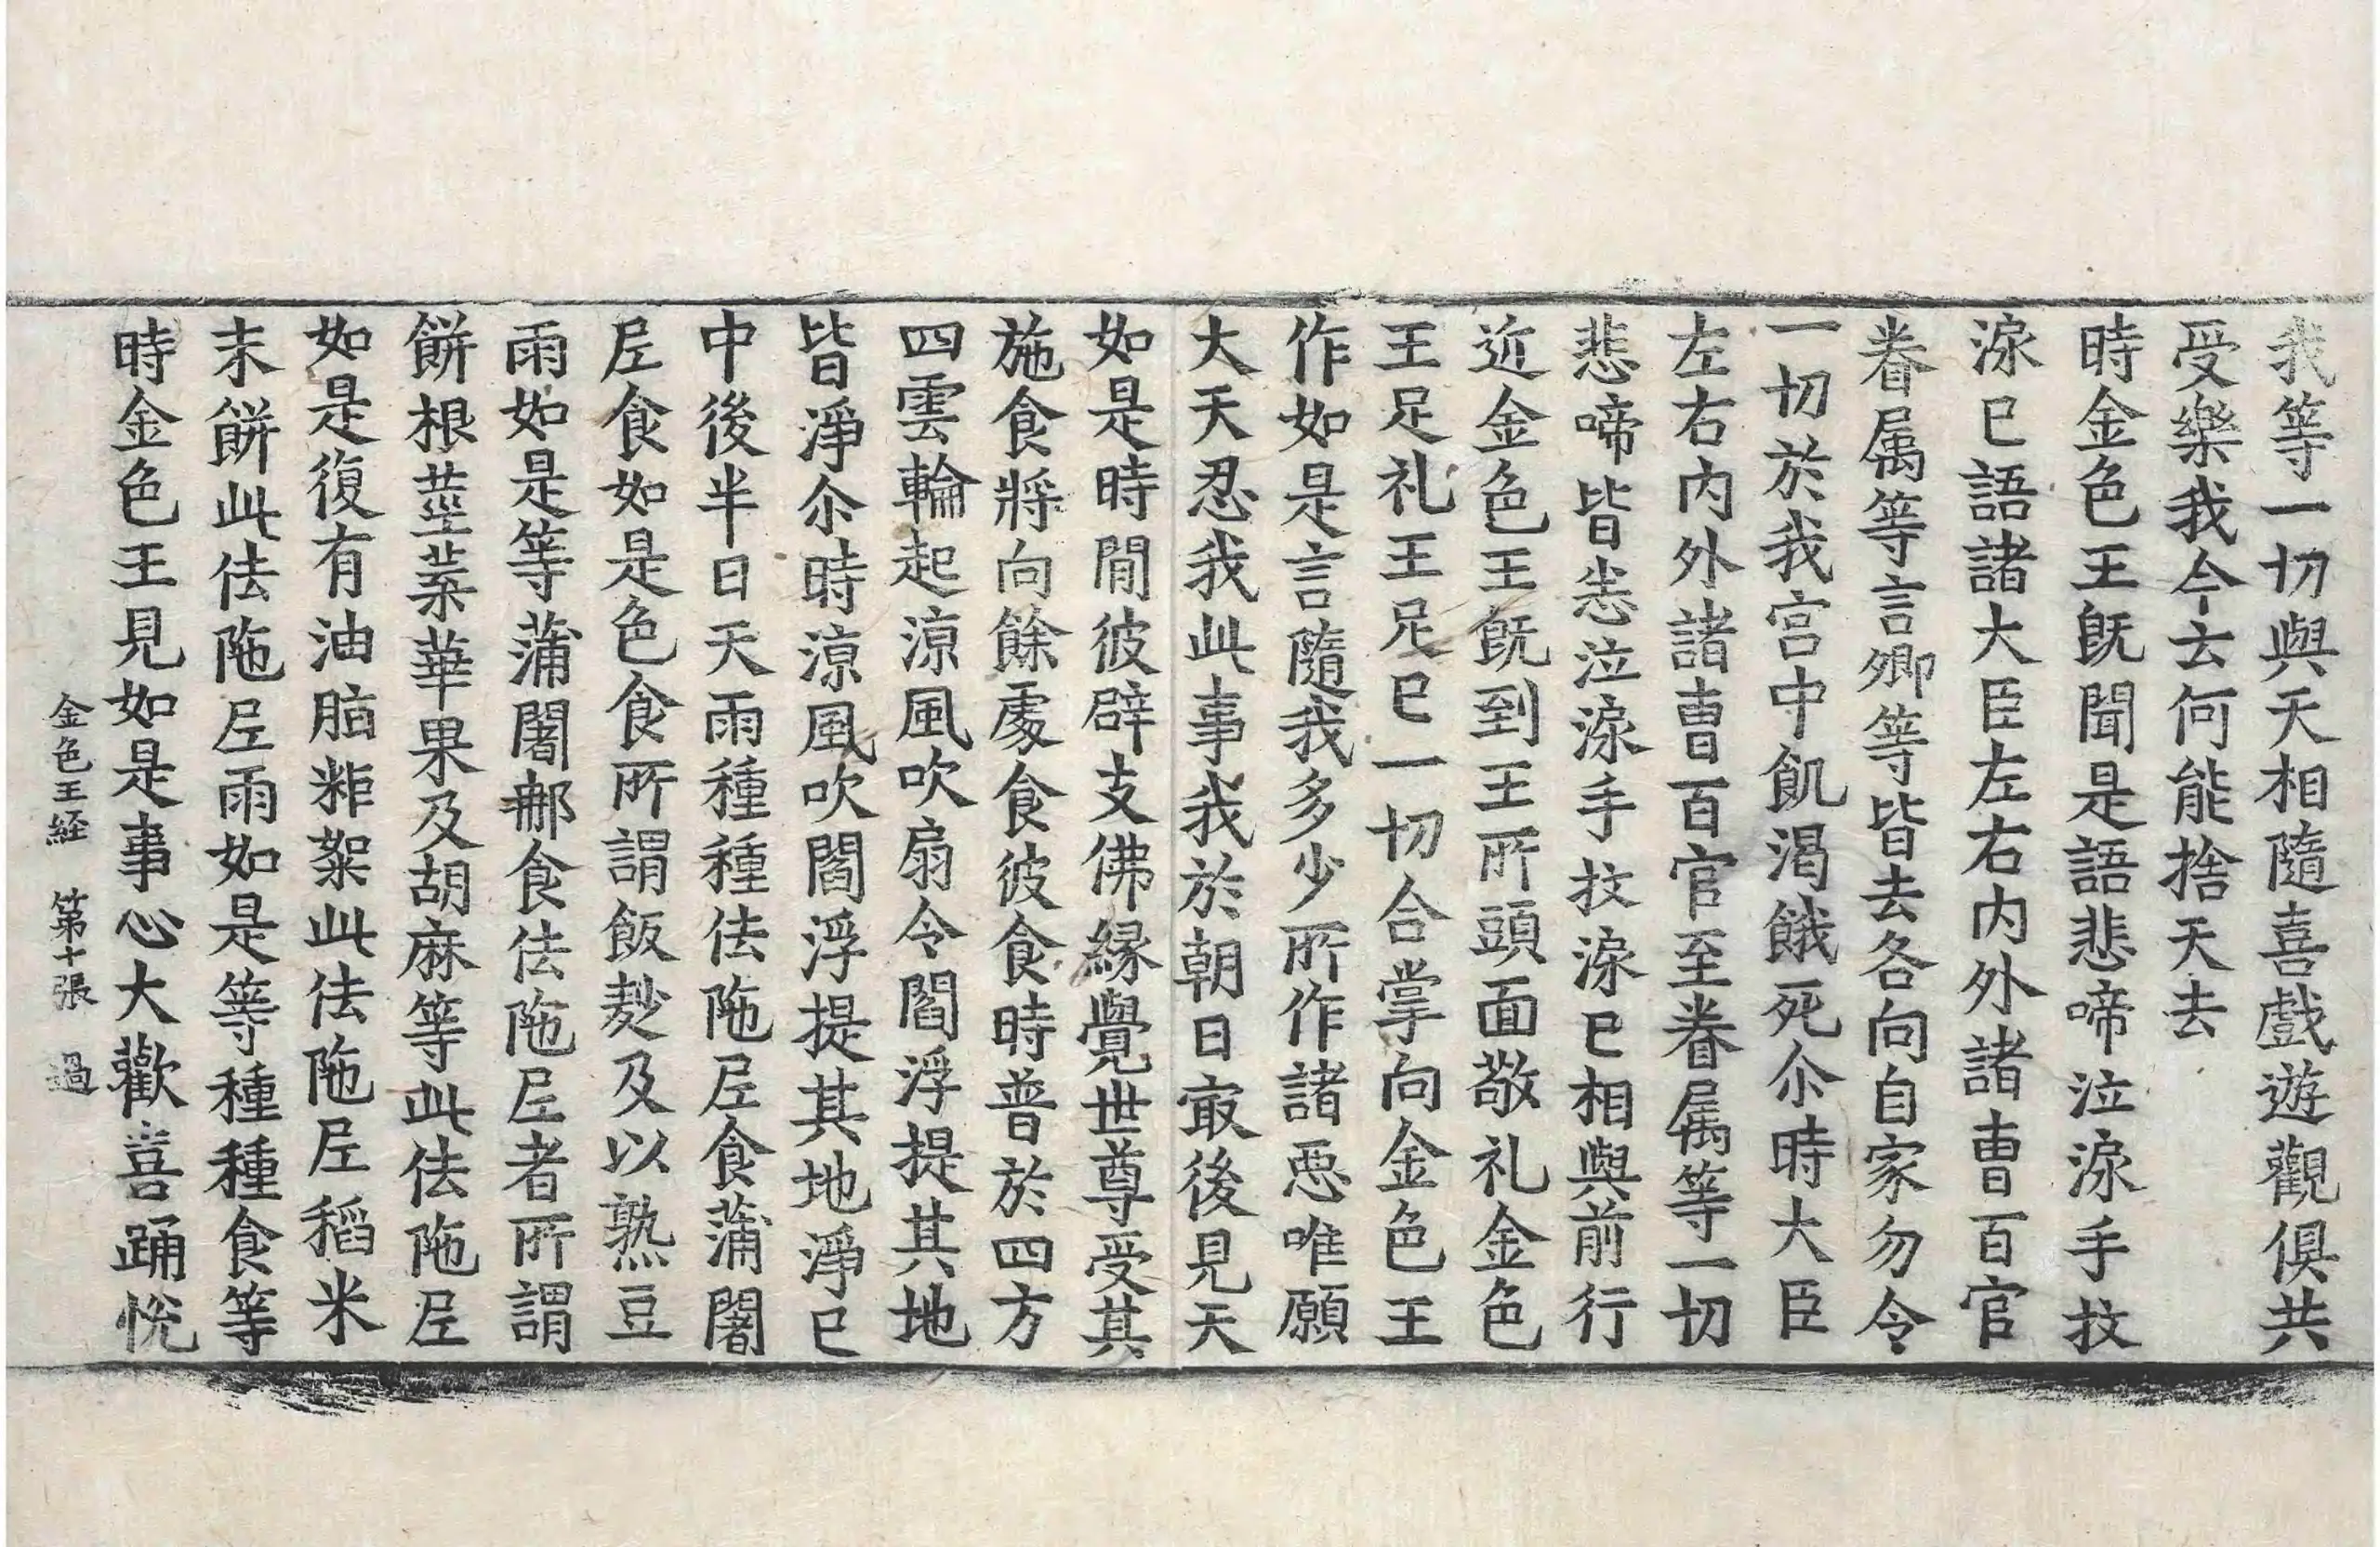 我等一切與天相隨喜戲遊觀俱共
受樂我今云何能捨天去
時金色王旣聞是語悲啼泣淚手抆
淚已語諸大臣左右内外諸曺百官
眷属等言卿等皆去各向自家勿令
一切於我宫中飢渴餓死尒時大臣
左右内外諸曺百官至眷属等一切
悲啼皆悲泣淚手抆淚已相與前行
近金色王旣到王所頭面敬礼金色
王足礼王足已一切合掌向金色王
作如是言隨我多少所作諸惡唯願
大天忍我此事我於朝日㝡後見天
如是時閒彼辟支佛緣覺世尊受其
施食將向餘處食彼食時普於四方
四雲輪起涼風吹扇令閻浮提其地
皆淨尒時涼風吹閻浮提其地淨已
中後半日天雨種種佉陁尼食蒲闍
尼食如是色食所謂飯麨及以熟豆
雨如是等蒲闍郍食佉陁尼者所謂
餅根莖葉華果及胡麻等此佉陁尼
如是復有油脂粖絮此佉陁尼稻米
末餅此佉陁尼雨如是等種種食等
時金色王見如是事心大歡喜踊悅
金色王経 第十張 過